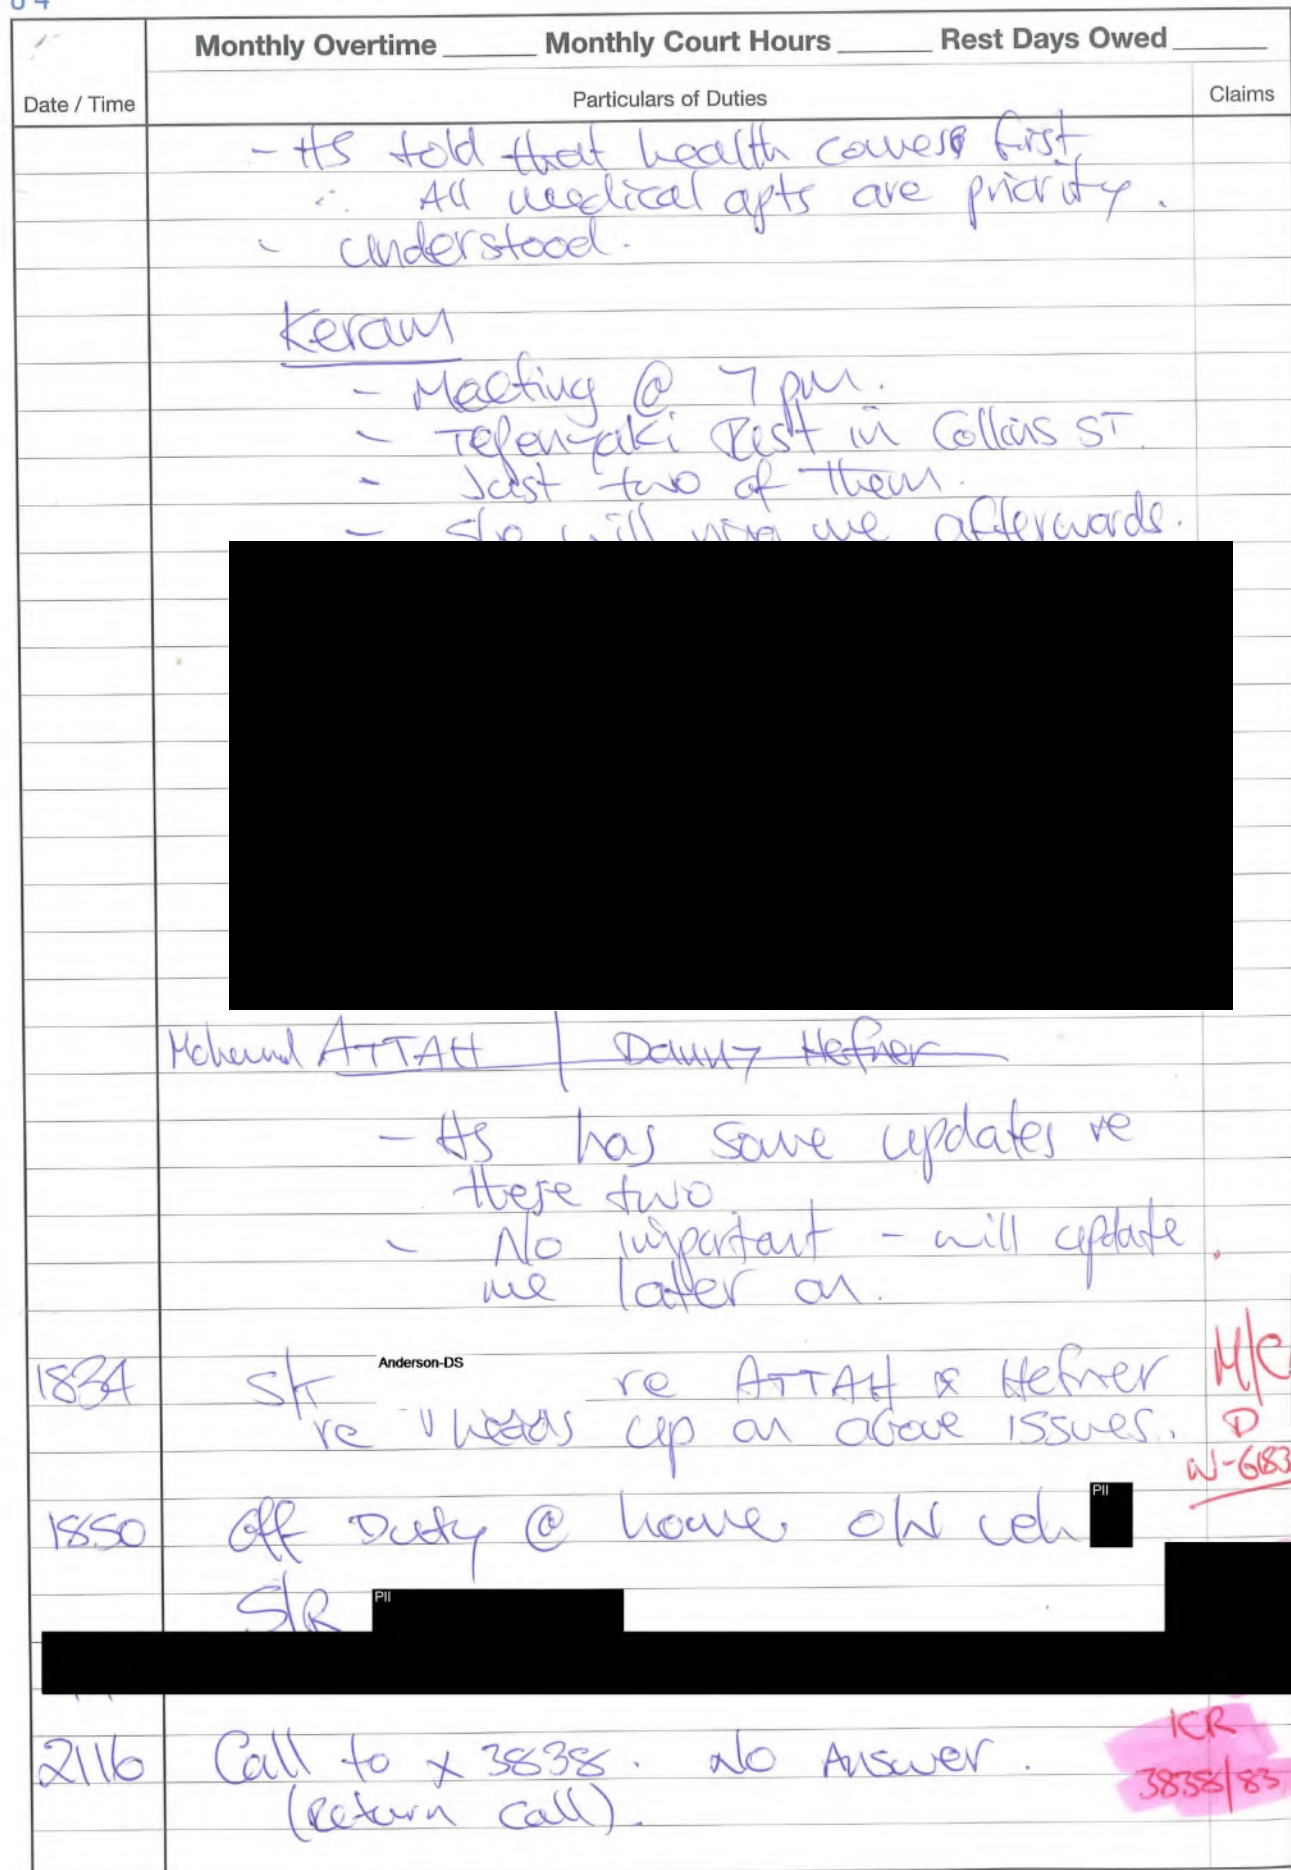 04
Monthly Overtime Monthly Court Hours Rest Days Owed
Date / Time Particulars of Duties Claims
- HS told that health comes first
∴ All medical apts are priority.
- understood.
Keram
- Meeting @ 7 pm.
- Tepenyaki Rest in Collins ST
- Just two of them.
- She will ring me afterwards.
Mohamed ATTAH / Danny Hefner
- HS has some updates re
these two
- No important - will update
me later on.
1834 Sk Anderson-DS re ATTAH & Hefner M/C
re heads up on above issues. D
W-6183
1850 Off Duty @ home O/N veh PII
S/R PII
2116 Call to x 3838. No Answer. ICR
(Return call). 3838/83